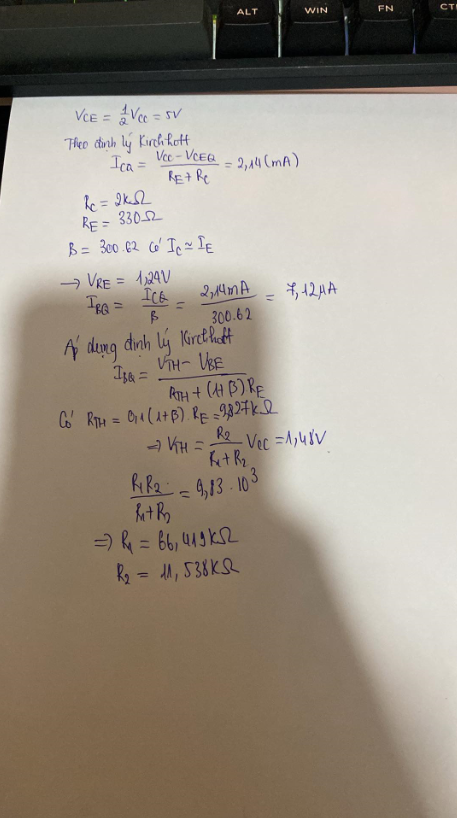 ALT WIN FN CT
VCE = 1/2 Vcc = 5V
Theo định lý Kirchhoff
ICQ = (Vcc - VCEQ)/(RE + Rc) = 2,14 (mA)
Rc = 2kΩ
RE = 330Ω
B = 300.62 Có Ic ≃ IE
→ VRE = 1,24V
IBQ = ICQ/β = 2,14mA/300.62 = 7,12μA
Áp dụng định lý Kirchhoff
IBQ = (VTH - VBE)/(RTH + (1+β)RE
Có RTH = 0,1(1+β).RE = 9,827kΩ
⇒ VTH = R2/(R1+R2) Vcc = 1,48V
R1R2/(R1+R2) = 9,83.10³
⇒ R1 = 66,419kΩ
R2 = 11,538kΩ